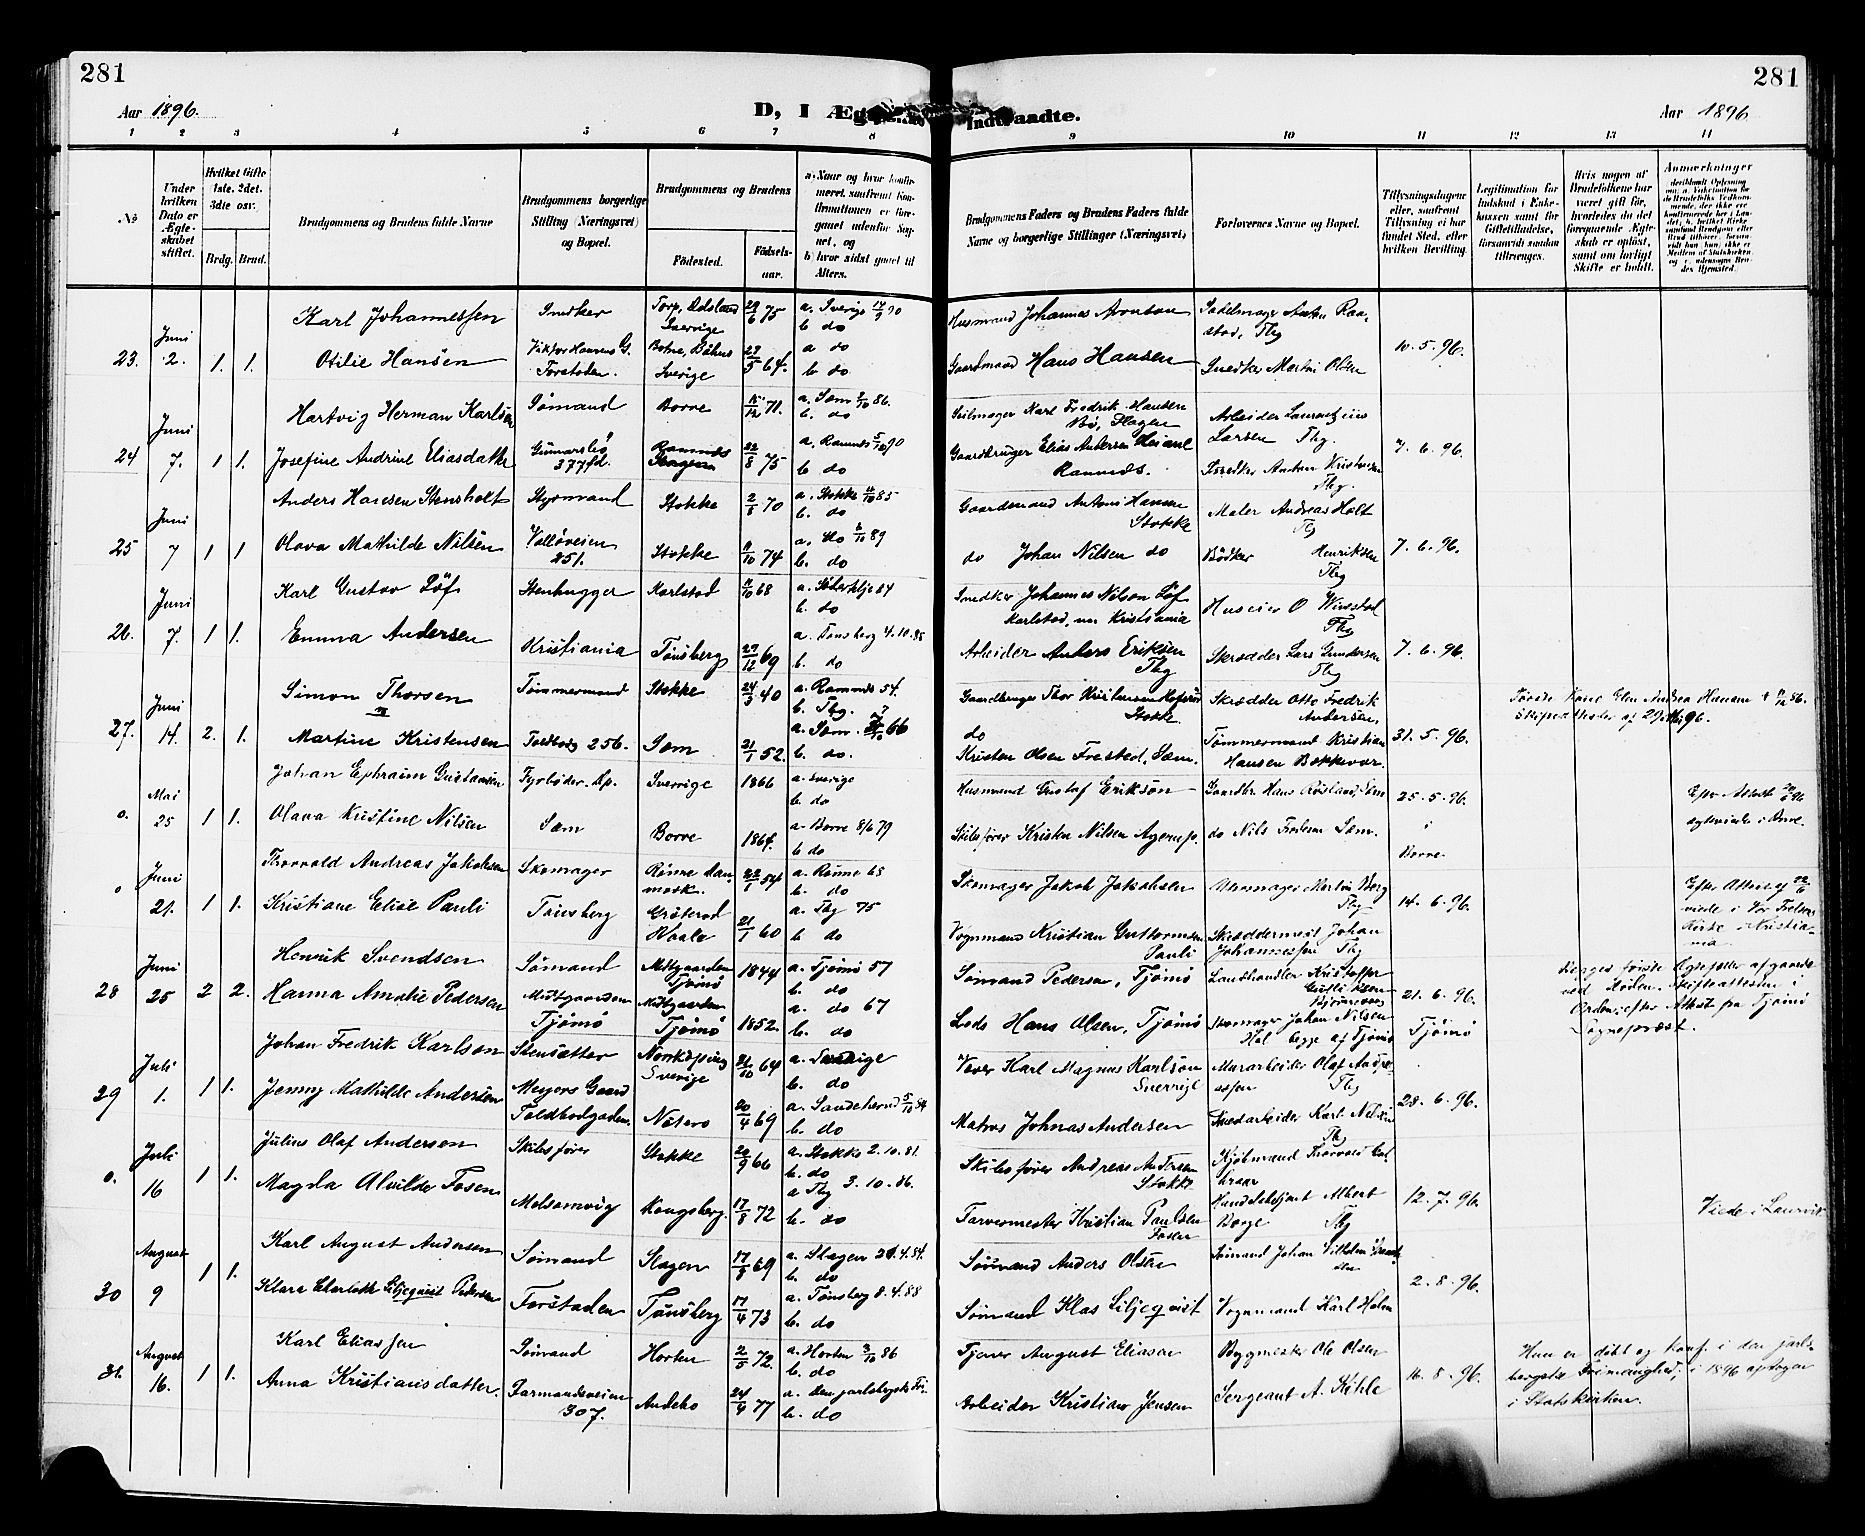 281
281
Aar 1896.
D, I Æg
Indtraadte.
Aar 1896
1 2 3 4 5 6 7 8 9 10 11 12 13 14
No
Under hvilken Dato er Ægteskabet stiftet.
Hvilket Gifte 1ste, 2det, 3die osv.
Brdg. Brud.
Brudgommens og Brudens fulde Navne
Brudgommens borgerlige Stilling (Næringsvei) og Bopæl.
Brudgommens og Brudens
Fødested.
Fødselsaar.
a. Naar og hvor konfirmeret, saafremt Konfirmationen er foregaaet udenfor Sognet, og
b) hvor sidst gaaet til Alters.
Brudgommens Faders og Brudens Faders fulde Navne og borgerlige Stillinger (Næringsvei)
Forlovernes Navne og Bopæl.
Tillysningsdagene eller, saafremt Tillysning ei har fundet Sted, efter hvilken Bevilling.
Legitimation for Indskud i Enkekassen samt for Giftetilladelse, forsaavidt saadan tiltrænges.
Hvis nogen af Brudefolkene har været gift før, hvorledes da det foregaaende Ægteskab er opløst, samt om lovligt Skifte er holdt.
Anmærkninger
23. Juni 2. 1. 1.
Karl Johannessen Snedker Torp, Dalsland Sverige 29/6 75 a. Sverige 17/9 90 b. do
Husmand Johannes Aronson Sadelmager Anton Raastad, Tbg
Otilie Hansen Viktor Hansens G. Forstaden. Botne, Båhus Sverige 27/5 64. a do b. do
Gaardmand Hans Hansen Snedker Martin Olsen 10.5.96.
24 Juni 7. 1 1.
Hartvig Herman Karlsen Sømand Borre 15/12 71. a. Sæm 3/10 86. b. do
Seilmager Karl Fredrik Hansen Bø, Slagen Arbeider Laurentzius Larsen Tbg.
Josefine Andrine Eliasdatter Gunnarsbø 377fd. Ramnæs 22/8 75 a. Ramnæs 5/10 90 b. do
Gaardbruger Elias Andersen Ramnæs. Snedker Anton Kristensen Tbg. 7.6.96.
25 Juni 7 1 1
Anders Hansen Stensholt Styrmand Stokke 2/8 70 a. Stokke 11/10 85 b. do
Gaardmand Antonis Hansen Stokke Maler Andreas Holt Tbg
Olava Mathilde Nilsen Valløveien 251. Stokke 9/10 74 a. do 6/10 89 b. do
do Johan Nilsen do Bødker Henriksen Tbg 7.6.96.
26. Juni 7. 1 1.
Karl Gustav Löf Stenhugger Karlstad 11/10 68 a. Söderhelje 84 b. do
Snedker Johannes Nilson Löf Karlstad, nu Kristiania Huseier O Winstad Tbg
Emma Andersen Kristiania Tønsberg 27/12 69 a. Tønsberg 4.10.85 b. do
Arbeider Anders Eriksen Tbg Skrædder Lars Gundersen Tbg 7.6.96.
27. Juni 14. 2. 1.
Simon Thorsen Tømmermand Stokke 24/3 40 a. Ramnæs 54. b. Tbg.
Gaardbruger Thor Kristensen Stokke Skrædder Otto Fredrik Andersen.
Martine Kristensen Toldbodg 256. Sæm 21/1 52. a. Sæm. 66 b. do.
do Kristen Olsen Frested, Sæm. Tømmermand Kristian Hansen Bekkevar. 31.5.96.
Første Kone Elen Andrea Hansen † 11/12 86. Skifteattester af 29. Mai 96.
0. Mai 25 1 1.
Johan Ephraim Gustavsen Fyrbøder. Dp. Sverrige 1866 a. Sverige b. do
Husmand Gustaf Erikson Gaardbr. Hans Røisland, Sem 25.5.96. i Borre.
Olava Kristine Nilsen Sæm Borre 1864. a. Borre 8/6 79 b do
Skibsfører Kristen Nilsen Agerup. do Nils Fredesen Sæm.
Efter Attest 20/6 96 ægteviede i Borre.
0 Juni 21. 1 1.
Thorvald Andreas Jakobsen Skomager Rønne Danmark. 22/1 54 a. Rønne 68 b. do
Skomager Jakob Jakobsen Uhrmager Martin Berg Tbg 14.6.96.
Kristiane Elise Pauli Tønsberg Grøterød Vaale 21/1 60 a. Tbg 75 b do
Vognmand Kristian Guttormsen Pauli Skræddermest Johan Johannessen Tbg
Efter Attest af 22/6 viede i Vor Frelsers Kirke i Kristiania.
28 Juni 25 2 2.
Henrik Svendsen Sømand Midtgaarden Tjømø 1844 a. Tjømø 57 b. do
Sømand Pedersen, Tjømø Landhandler Kristoffer
Hanna Amalie Pedersen Midtgaarden Tjømø Midtgaarden Tjømø 1852. a. do 67 b. do
Lods Hans Olsen, Tjømø Skomager Johan Nilsen Hol begge af Tjømø 21.6.96. Tjømø
Begges første Ægtefæller afgaaede ved Døden. Skifteattesten i Orden, efter Attest fra Tjømø Sognepræst.
29 Juli 1. 1 1.
Johan Fredrik Karlson Stensætter Norrköping Sverige 21/10 64 a. Sverige b. do
Væver Karl Magnus Karlson Sverrige Murarbeider Olaf Andreassen Tbg
Jenny Mathilde Andersen Meyers Gaard Toldbodgaden. Nøtterø 20/4 69 a. Sandeherred 5/10 84 b. do
Matros Johnas Andersen Karl Nilsen Tbg 28.6.96.
0. Juli 16 1 1.
Julius Olaf Andersen Skibsfører Stokke 20/9 66 a. Stokke 2.10.81. b. do
Skibsfører Andreas Andersen Stokke Kjøbmand Thorvald
Magda Alvilde Fosen Melsomvig Kongsberg. 17/8 72 a Tbg 3.10.86. b. do
Farvermester Kristian Paulsen Fosen Handelsbetjent Albert Borge Tbg 12.7.96.
Viede i Laurvik
30 August 9 1 1.
Karl August Andersen Sømand Slagen 17/8 69 a. Slagen 20.4.84. b. do
Sømand Anders Olsen Sømand Johan Vilhelm
Klara Charlotte Liljequist Pedersen Forstaden Tønsberg 17/4 73 a. Tønsberg 8.4.88 b. do
Sømand Klas Liljeqvist Vognmand Karl Holm 2.8.96.
31. August 16. 1 1.
Karl Eliassen Sømand Horten 2/5 72. a. Horten 3/10 86 b. do
Tjener August Eliasen Bygmester Ole Olsen
Anna Kristiansdatter. Farmandsveien 307. Andebo 24/9 77 a. den jarlsbergske Fri. b. do
Arbeider Kristian Jensen Sergeant A. Kihle 16.8.96.
Hun er døbt og konf. i den jarlsbergske Frimenighed, i 1896 optagen i Statskirken.